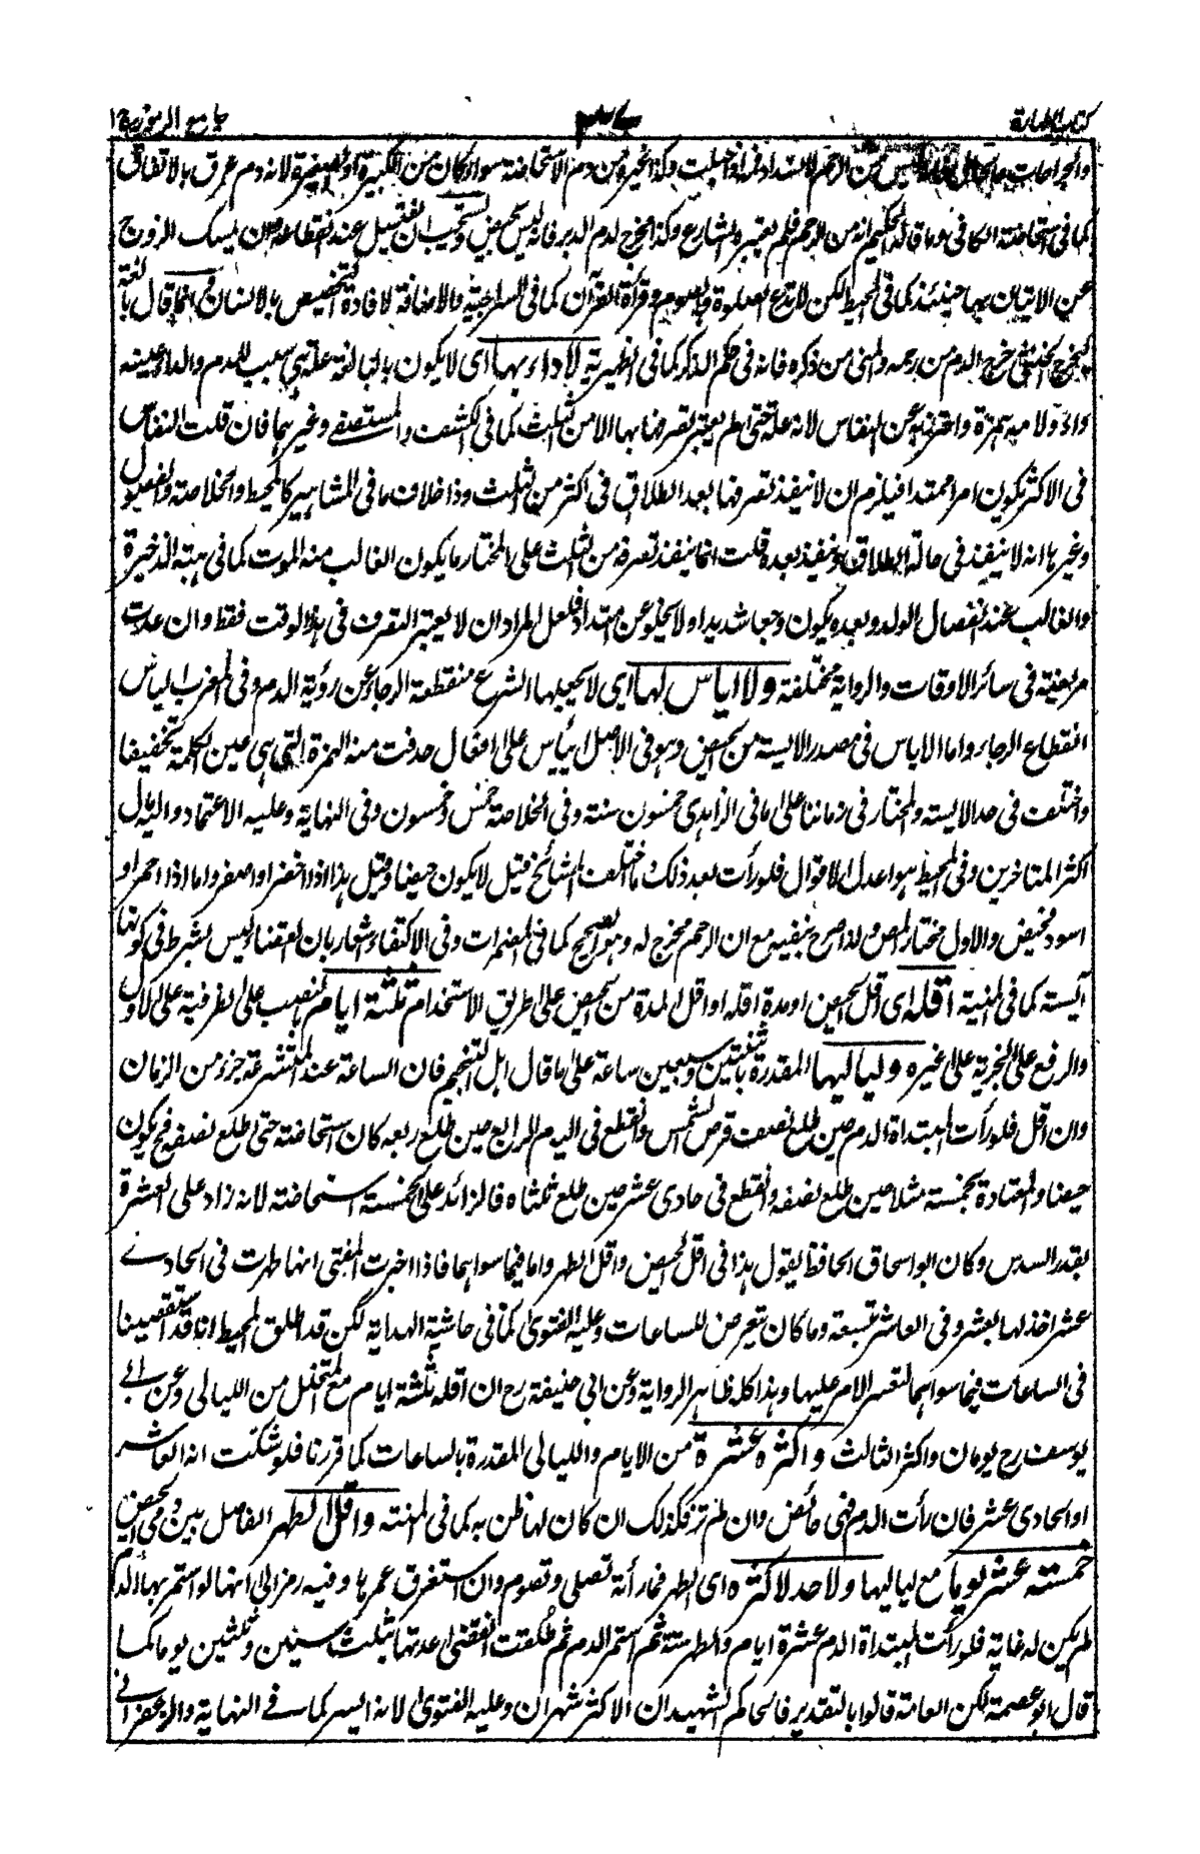 كتاب الطهارة جامع الرموز ج ١
والجراحات ليس من الرحم لانسداد فمه اذا حبلت وكذا غيره من دم الاستحاضة سواء كان من الكبيرة او الصغيرة لانه دم عرق بالاتفاق
كما في استحاضة الكافي وما قال الحكيم انه من الرحم فلم يعتبره الشارع وكذا مخرج لدم الدبر فانه ليس بحيض ويستحب ان تغتسل عند انقطاعه وان يمسك الزوج
عن الاتيان بها حينئذ كما في المحيط لكن لا تدع الصلوة والصوم وقراءة القرآن كما في السراجية والاضافة لافادة التخصيص بالانسان وانما قال بالغة
ليخرج الخنثى خرج الدم من رحمه والمنى من ذكره فانه في حكم الذكر كما في الظهيرية لا داء بها اى لا يكون بالبالغة علة هى سبب للدم والداء عينه
واو ولامه همزة واحترز به عن النفاس لانه علة حتى لم يعتبر تصرفها بها الا من الثلث كما في الكشف والمستصفى وغيرهما فان قلت النفاس
في الاكثر يكون امرا ممتدا فيلزم ان لا ينفذ تصرفها بعد الطلاق في اكثر من الثلث وذا خلاف ما في المشاهير كالمحيط والخلاصة والفصول
وغيرها انه لا ينفذ في حالة الطلاق وينفذ بعده قلت انما ينفذ تصرفه من الثلث على المختار ما يكون الغالب منه الموت كما في هبة الذخيرة
والغالب عند انفصال الولد وبعده يكون وجعا شديدا ولا يخلو عن امتداد فلعل المراد ان لا يعتبر التصرف في هذا الوقت فقط وان عدت
مريضة في سائر الاوقات والرواية مختلفة ولا اياس لها اى لا يجعلها الشرع منقطعة الرجاء عن رؤية الدم وفى المغرب الياس
انقطاع الرجاء واما الاياس في مصدر الايسة من الحيض وهو في الاصل ايئاس على افعال حذفت منه الهمزة التى هى عين الكلمة تخفيفا
واختلف في حد الايسة والمختار في زماننا على ما في الزاهدى خمسون سنة وفى الخلاصة خمس وخمسون وفى النهاية وعليه الاعتماد واليه مال
اكثر المتاخرين وفى المحيط هو اعدل الاقوال فلو رأت بعد ذلك دما اختلف المشائخ فقيل لا يكون حيضا وقيل هذا اذا اخضر او اصفر واما اذا احمر او
اسود فحيض والاول مختار المص ولذا صرح بنفيه مع ان الرحم مخرج له وهو الصحيح كما في المضمرات وفى الاكتفاء اشعار بان القضاء ليس بشرط في كونها
آيسة كما في المنية اقله اى اقل الحيض او مدة اقله او اقل المدة من الحيض على طريق الاستخدام ثلثة ايام بالنصب على الظرفية على الاول
والرفع على الخبرية على غيره ولياليها المقدرة باثنتين وسبعين ساعة على ما قال اهل التنجيم فان الساعة عند المتشرعة جزء من الزمان
وان اقل فلو رأت المبتدأة الدم حين طلع نصف قرص الشمس وانقطع في اليوم الرابع حين طلع ربعه كان استحاضة حتى طلع نصفه فح يكون
حيضا والمعتادة بخمسة مثلا حين طلع نصفه وانقطع في حادى عشر حين طلع ثلثاه فالزائد على الخمسة استحاضة لانه زاد على العشرة
بقدر السدس وكان ابو اسحاق الحافظ يقول هذا في اقل الحيض واقل الطهر واما فيما سواهما فاذا اخبرت المفتى انها طهرت في الحادى
عشر اخذ لها بعشر وفى العاشر بتسعة وما كان تعرض للساعات وعليه الفتوى كما في حاشية الهداية لكن قد اطلق المحيط انا قد استقصينا
في الساعات فيما سواهما لتعسر الامر عليها وهذا كله ظاهر الرواية وعن ابى حنيفة رح ان اقله ثلثة ايام مع المتخلل من الليالى وعن ابى
يوسف رح يومان واكثر الثالث واكثره عشرة من الايام والليالى المقدرة بالساعات كما قررنا فلو شكت انه العاشر
او الحادى عشر فان رأت الدم فهى حائض وان لم تر فكذلك ان كان لها ظن به كما في المنية واقل الطهر الفاصل بين دمى الحيض
خمسة عشر يوما مع لياليها ولا حد لاكثره اى الطهر فما رأته تصلى وتصوم وان استغرق عمرها وفيه رمز الى انها لو استمر بها الدم
لم يكن له غاية فلو رأت المبتدأة الدم عشرة ايام والطهر ستة ثم استمر الدم ثم طلقت انقضى عدتها بثلث سنين وثلثين يوما كما
قال ابو عصمة لكن العامة قالوا بالتقدير فالحاكم الشهيد ان الاكثر شهران وعليه الفتوى لانه ايسر كما في النهاية والزعفرانى